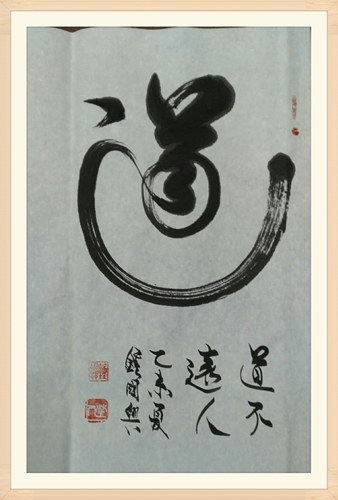 道
道不
遠人
乙未夏